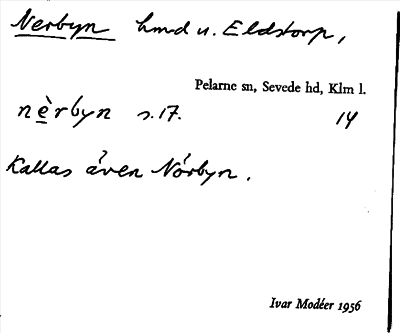 Nerbyn hmd u. Eldstorp,
Pelarne sn, Sevede hd, Klm l.
nèrbyn s. 17. 14
Kallas även Nórbyn.
Ivar Modéer 1956